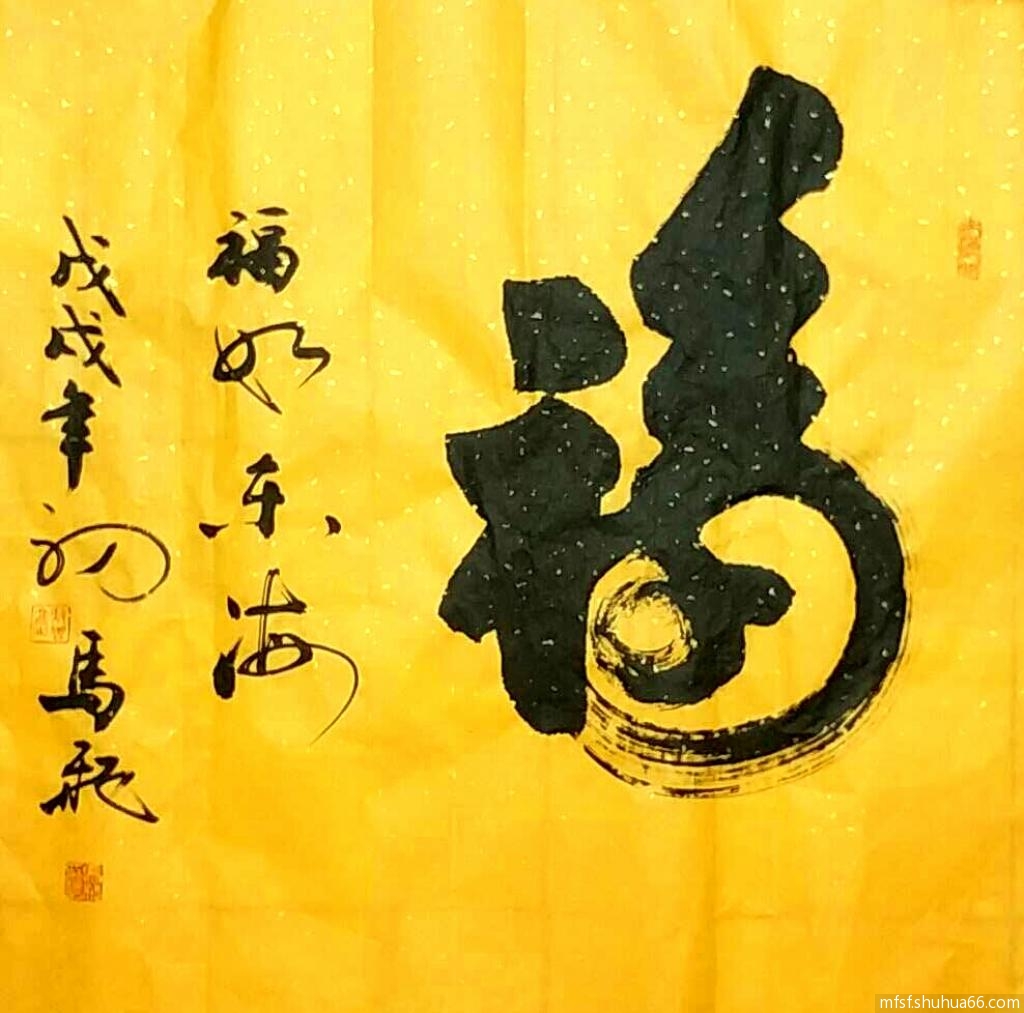 福
福如东海
戊戌年初馬飛
mfsfshuhua66.com